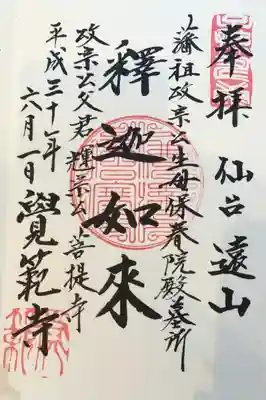 奉拝 仙台 遠山
藩祖政宗公生母保春院殿墓所
釋迦如来
政宗公父君輝宗公菩提寺
平成三十年
六月一日 覺範寺